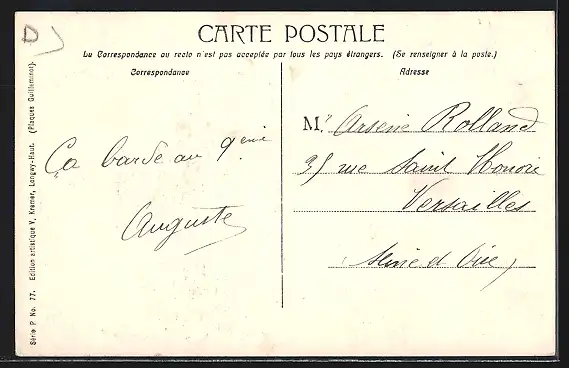 D
CARTE POSTALE
La Correspondance au recto n'est pas acceptée par tous les pays étrangers. (Se renseigner à la poste.)
Correspondance
Adresse
Ça barde au 9eme
Auguste
M. Arsène Rolland
35 rue Saint Honoré
Versailles
Seine et Oise
Série P No. 77. Edition artistique V. Kremer, Longwy-Haut. (Plaques Guilleminot).